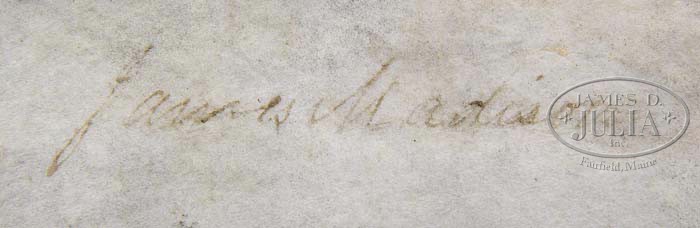 James Madiso
JAMES D.
JULIA
Inc.
Fairfield, Maine